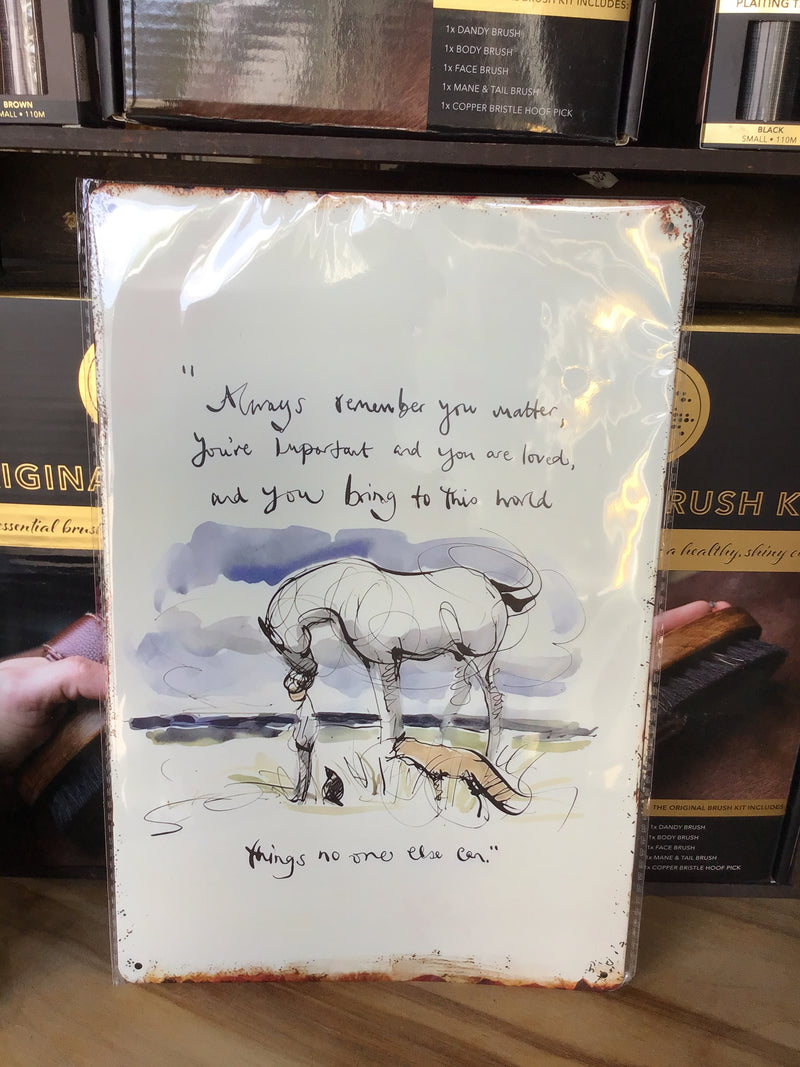 BROWN
MALL • 110M
BRUSH KIT INCLUDES:
1x DANDY BRUSH
1x BODY BRUSH
1x FACE BRUSH
1x MANE & TAIL BRUSH
1x COPPER BRISTLE HOOF PICK
PLAITING T
BLACK
SMALL • 110M
"Always remember you matter,
you're important and you are loved,
and you bring to this world
things no one else can."
IGINA
essential brus
RUSH K
a healthy, shiny c
THE ORIGINAL BRUSH KIT INCLUDES
1x DANDY BRUSH
1x BODY BRUSH
1x FACE BRUSH
1x MANE & TAIL BRUSH
1x COPPER BRISTLE HOOF PICK